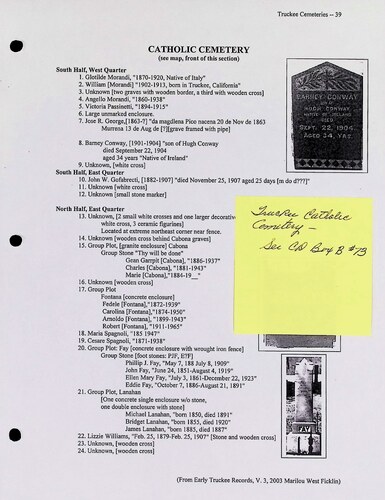 Truckee Cemeteries -- 39
CATHOLIC CEMETERY
(see map, front of this section)
South Half, West Quarter
1. Glotilde Morandi, "1870-1920, Native of Italy"
2. William [Morandi] "1902-1913, born in Truckee, California"
3. Unknown [two graves with wooden border, a third with wooden cross]
4. Angello Morandi, "1860-1938"
5. Victoria Passinetti, "1894-1915"
6. Large unmarked enclosure.
7. Jose R. George,[1863-?] "da magdlena Pico nacena 20 de Nov de 1863
Murrena 13 de Aug de [?][grave framed with pipe]
8. Barney Conway, [1901-1904] "son of Hugh Conway
died September 22, 1904
aged 34 years "Native of Ireland"
9. Unknown, [white cross]
South Half, East Quarter
10. John W. Gofobrecti, [1882-1907] "died November 25, 1907 aged 25 days [m do d???]"
11. Unknown [white cross]
12. Unknown [small stone marker]
North Half, East Quarter
13. Unknown, [2 small white crosses and one larger decorativ
white cross, 3 ceramic figurines]
Located at extreme northeast corner near fence.
14. Unknown [wooden cross behind Cabona graves]
15. Group Plot, [granite enclosure] Cabona
Group Stone "Thy will be done"
Gean Garrpit [Cabona], "1886-1937"
Charles [Cabona], "1881-1943"
Marie [Cabona],"1884-19__"
16. Unknown [wooden cross]
17. Group Plot
Fontana [concrete enclosure]
Fedele [Fontana],"1872-1939"
Carolina [Fontana],"1874-1950"
Arnoldo [Fontana], "1899-1943"
Robert [Fontana], "1911-1965"
18. Maria Spagnoli, "185 1947"
19. Cesare Spagnoli, "1871-1938"
20. Group Plot: Fay [concrete enclosure with wrought iron fence]
Group Stone [foot stones: PJF, E?F]
Phillip J. Fay, "May 7, 188 July 8, 1909"
John Fay, "June 24, 1851-August 4, 1919"
Ellen Mary Fay, "July 3, 1861-December 22, 1923"
Eddie Fay, "October 7, 1886-August 21, 1891"
21. Group Plot, Lanahan
[One concrete single enclosure w/o stone,
one double enclosure with stone]
Michael Lanahan, "born 1850, died 1891"
Bridget Lanahan, "born 1855, died 1920"
James Lanahan, "born 1885, died 1887"
22. Lizzie Williams, "Feb. 25, 1879-Feb. 25, 1907" [Stone and wooden cross]
23. Unknown, [wooden cross]
24. Unknown, [wooden cross]
BARNEY CONWAY
SON OF
HUGH CONWAY
NATIVE OF IRELAND
DIED
SEPT. 22, 1904
AGED 34 YRS
Truckee Catholic
Cemetery –
See CD Box B #73
FAY
(From Early Truckee Records, V. 3, 2003 Marilou West Ficklin)